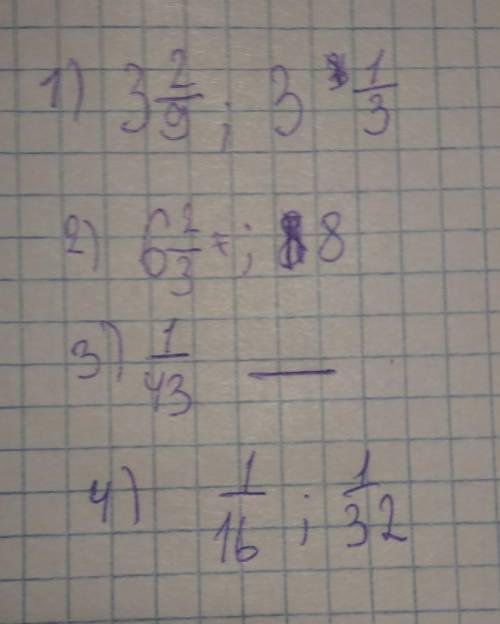 1) 3 2/9 ; 3 1/3
2) 6 2/3 + ; 8
3) 1/43 —
4) 1/16 ; 1/32